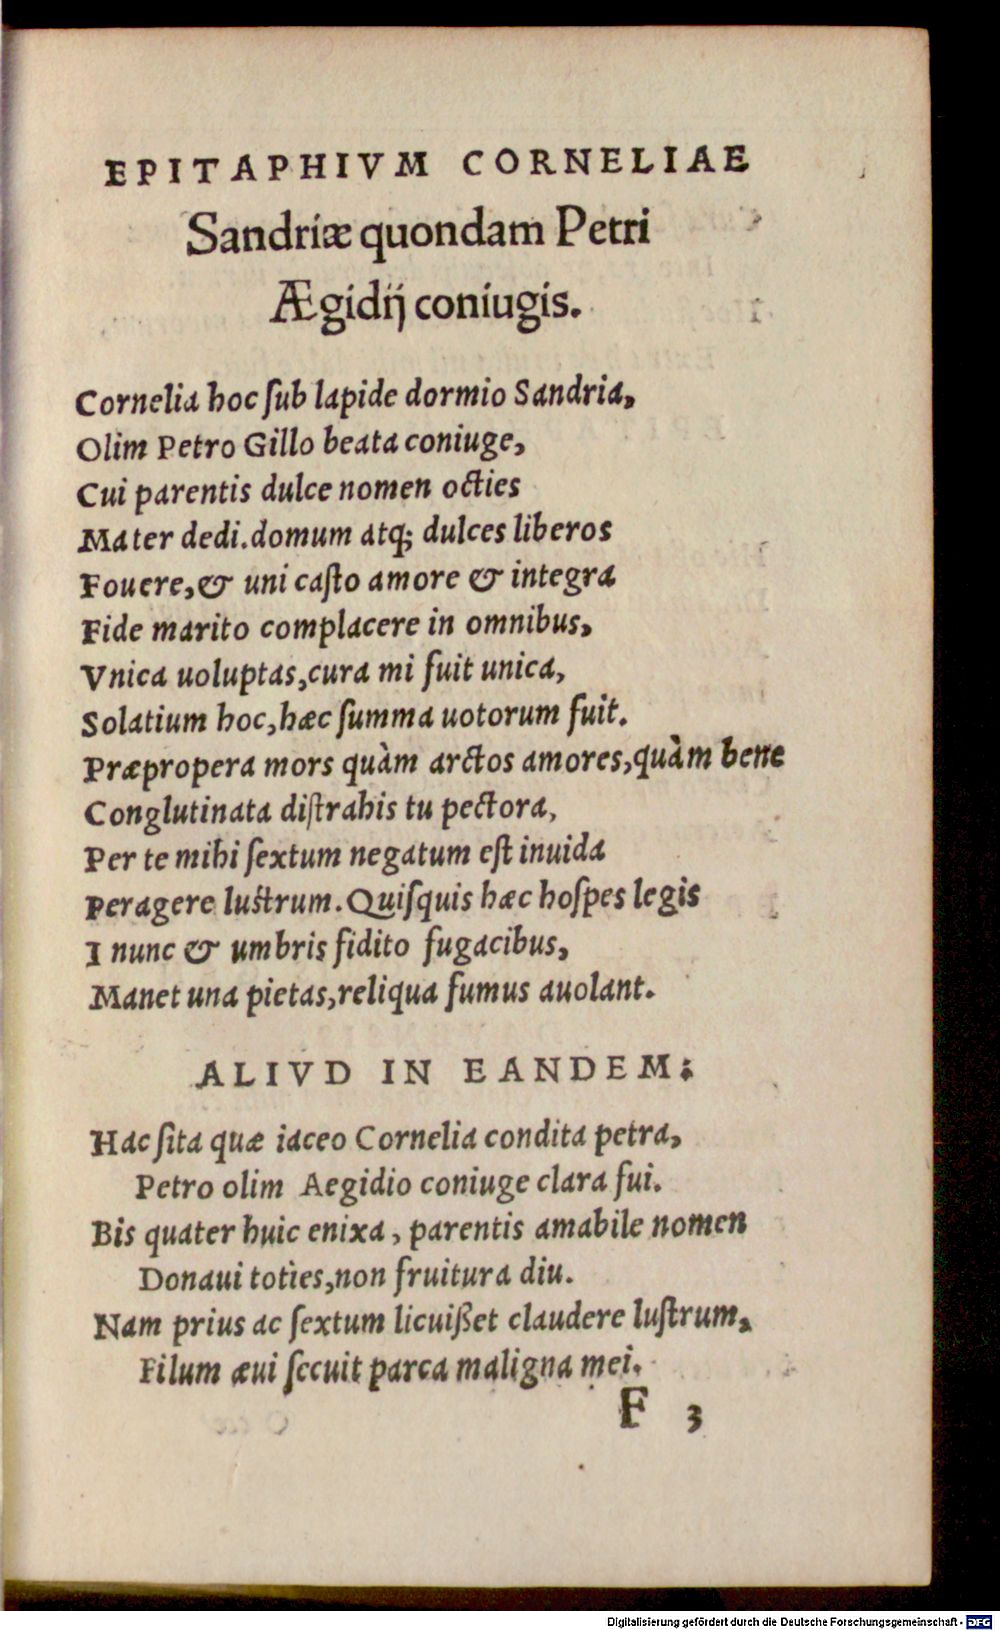 EPITAPHIVM CORNELIAE
Sandriæ quondam Petri
Ægidij coniugis.
Cornelia hoc ſub lapide dormio Sandria,
Olim Petro Gillo beata coniuge,
Cui parentis dulce nomen octies
Mater dedi.domum atq; dulces liberos
Fouere,& uni caſto amore & integra
Fide marito complacere in omnibus,
Vnica uoluptas,cura mi fuit unica,
Solatium hoc,hæc ſumma uotorum fuit.
Præpropera mors quàm arctos amores,quàm bene
Conglutinata diſtrahis tu pectora,
Per te mihi ſextum negatum eſt inuida
Peragere luſtrum.Quiſquis hæc hoſpes legis
I nunc & umbris fidito fugacibus,
Manet una pietas,reliqua fumus auolant.
ALIVD IN EANDEM;
Hac ſita quæ iaceo Cornelia condita petra,
Petro olim Aegidio coniuge clara fui.
Bis quater huic enixa, parentis amabile nomen
Donaui toties,non fruitura diu.
Nam prius ac ſextum licuißet claudere luſtrum,
Filum æui ſecuit parca maligna mei.
F 3
Digitalisierung gefördert durch die Deutsche Forschungsgemeinschaft - DFG